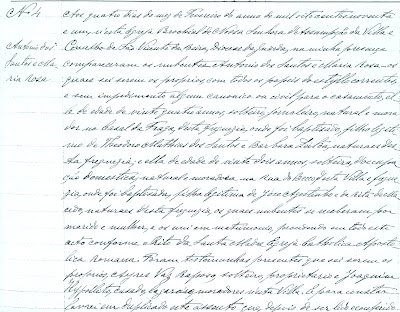 Nº 4
Antonio dos
Santos e Ma-
ria Rosa
Aos quatro dias do mez de Fevereiro do anno de mil oito centos noventa
e um, n'esta Egreja Parochial de Nossa Senhora da Assumpção da Villa e
Concelho de São Vicente da Beira, Diocese da Guarda, na minha presença
compareceram os nubentes Antonio dos Santos e Maria Rosa os
quaes sei serem os proprios, com todos os papeis do estylo correntes,
e sem impedimento algum canonico ou civil para o casamento, el-
le de edade de vinte quatro annos, solteiro, jornaleiro, natural e mora-
dor no casal da Fraga, d'esta freguezia, onde foi baptisado, filho legiti-
mo de Theodoro Mathias dos Santos e Barbara Santos, naturaes des-
ta freguezia; e ella de edade de vinte dois annos, solteira, d'occupa-
ção domestica, natural e moradora na Rua do desta Villa e fregue-
zia, onde foi baptisada, filha legitima de João Agostinho e Maria
naturaes d'esta freguezia, os quaes nubentes se receberam por
marido e mulher, e os uni em matrimonio, procedendo em todo este
acto conforme o Rito da Santa Madre Egreja Catholica Aposto-
lica Romana. Foram testemunhas presentes que sei serem os
proprios, Ayres Vaz Raposo, solteiro, proprietario e Joaquim
Hypolito, casado, moradores n'esta Villa. E para constar
lavrei em duplicado este assento que, depois de ser lido e conferido